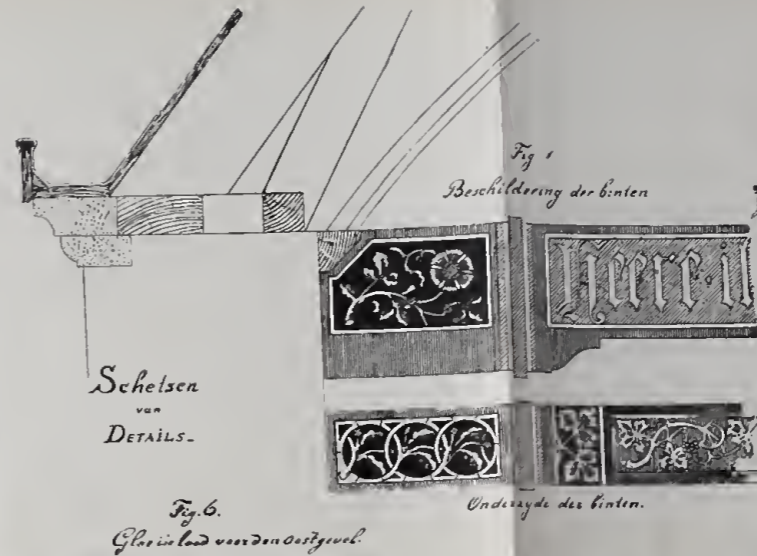 Fig 1
Beschildering der binten
Heere
Schetsen
van
DETAILS_
Onderzyde der binten.
Fig. 6.
Glas in lood voor den oostgevel.